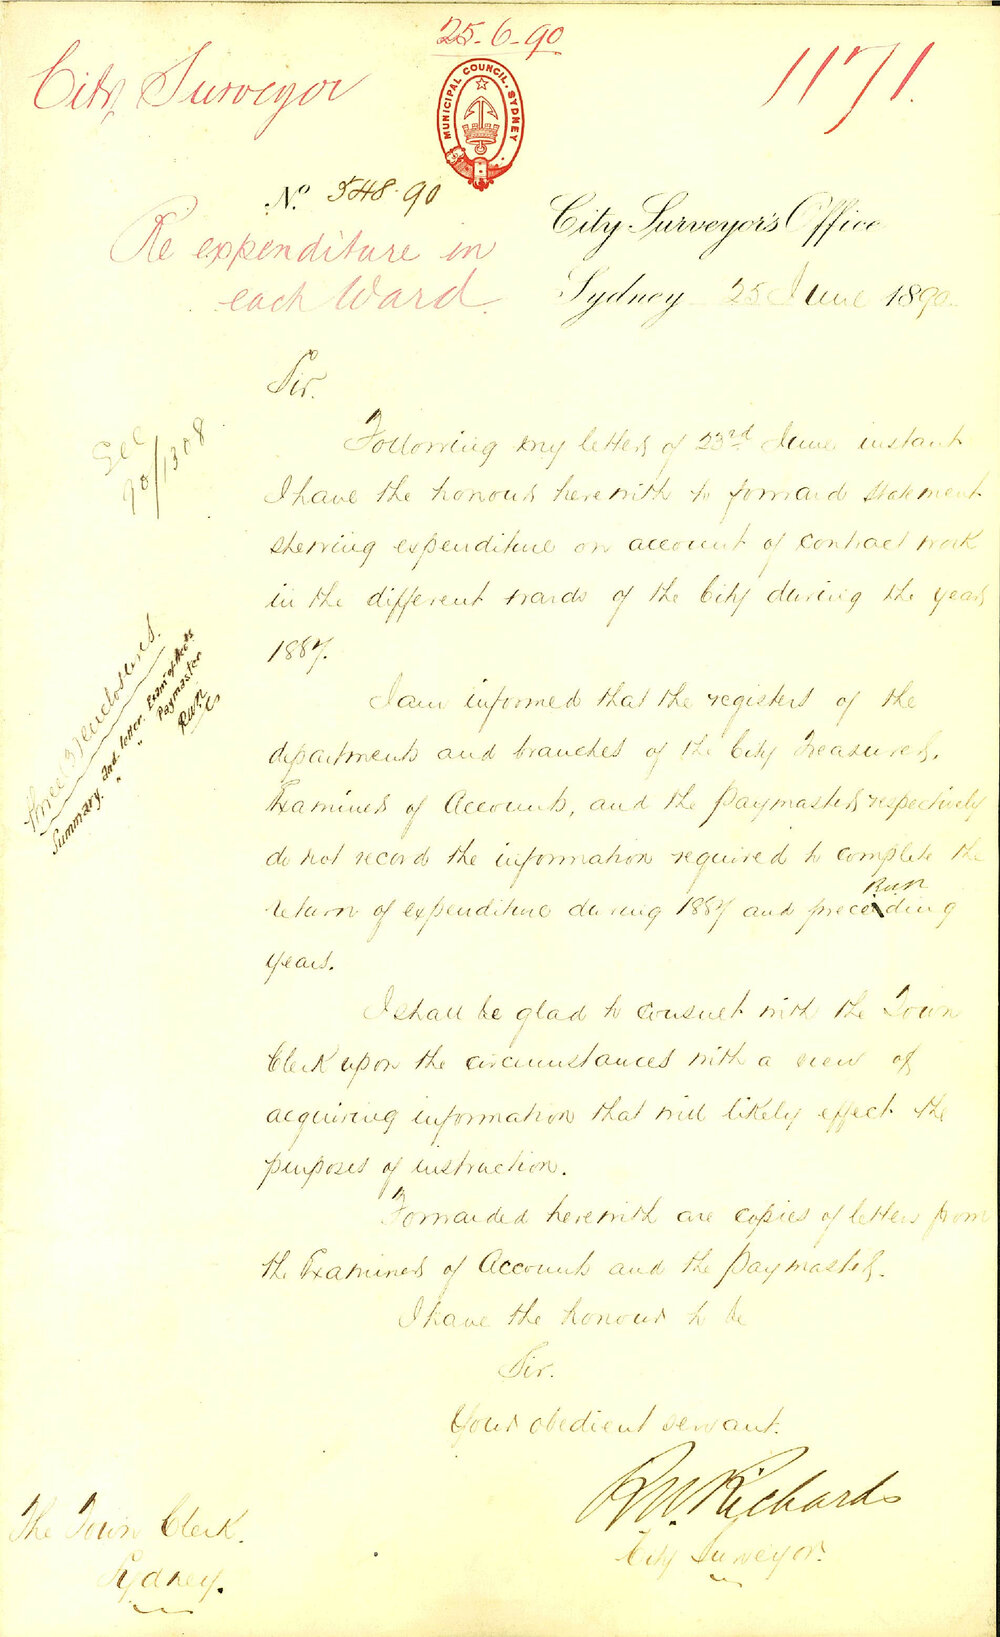 25-6-90
City Surveyor
1171
MUNICIPAL COUNCIL. SYDNEY
No. 548-90
City Surveyor's Office
Re expenditure in
each Ward
Sydney 25 June 1890
Sir.
See
90/1308
Following my letter of 23rd June instant
I have the honour herewith to forward statement
shewing expenditure on account of contract work
in the different wards of the City during the year
1887.
three enclosures.
Summary, and letter. Exam. of Accts
" " Paymaster
RWR
CS
I am informed that the registers of the
departments and branches of the City Treasurer,
Examiner of Accounts, and the Paymaster respectively
do not record the information required to complete the
return of expenditure during 1887 and preceding
RWR
years.
I shall be glad to consult with the Town
Clerk upon the circumstances with a view of
acquiring information that will likely effect the
purposes of instruction.
Forwarded herewith are copies of letters from
the Examiner of Accounts and the Paymaster.
I have the honour to be
Sir.
Your obedient servant.
RW. Richards
City Surveyor.
The Town Clerk.
Sydney.